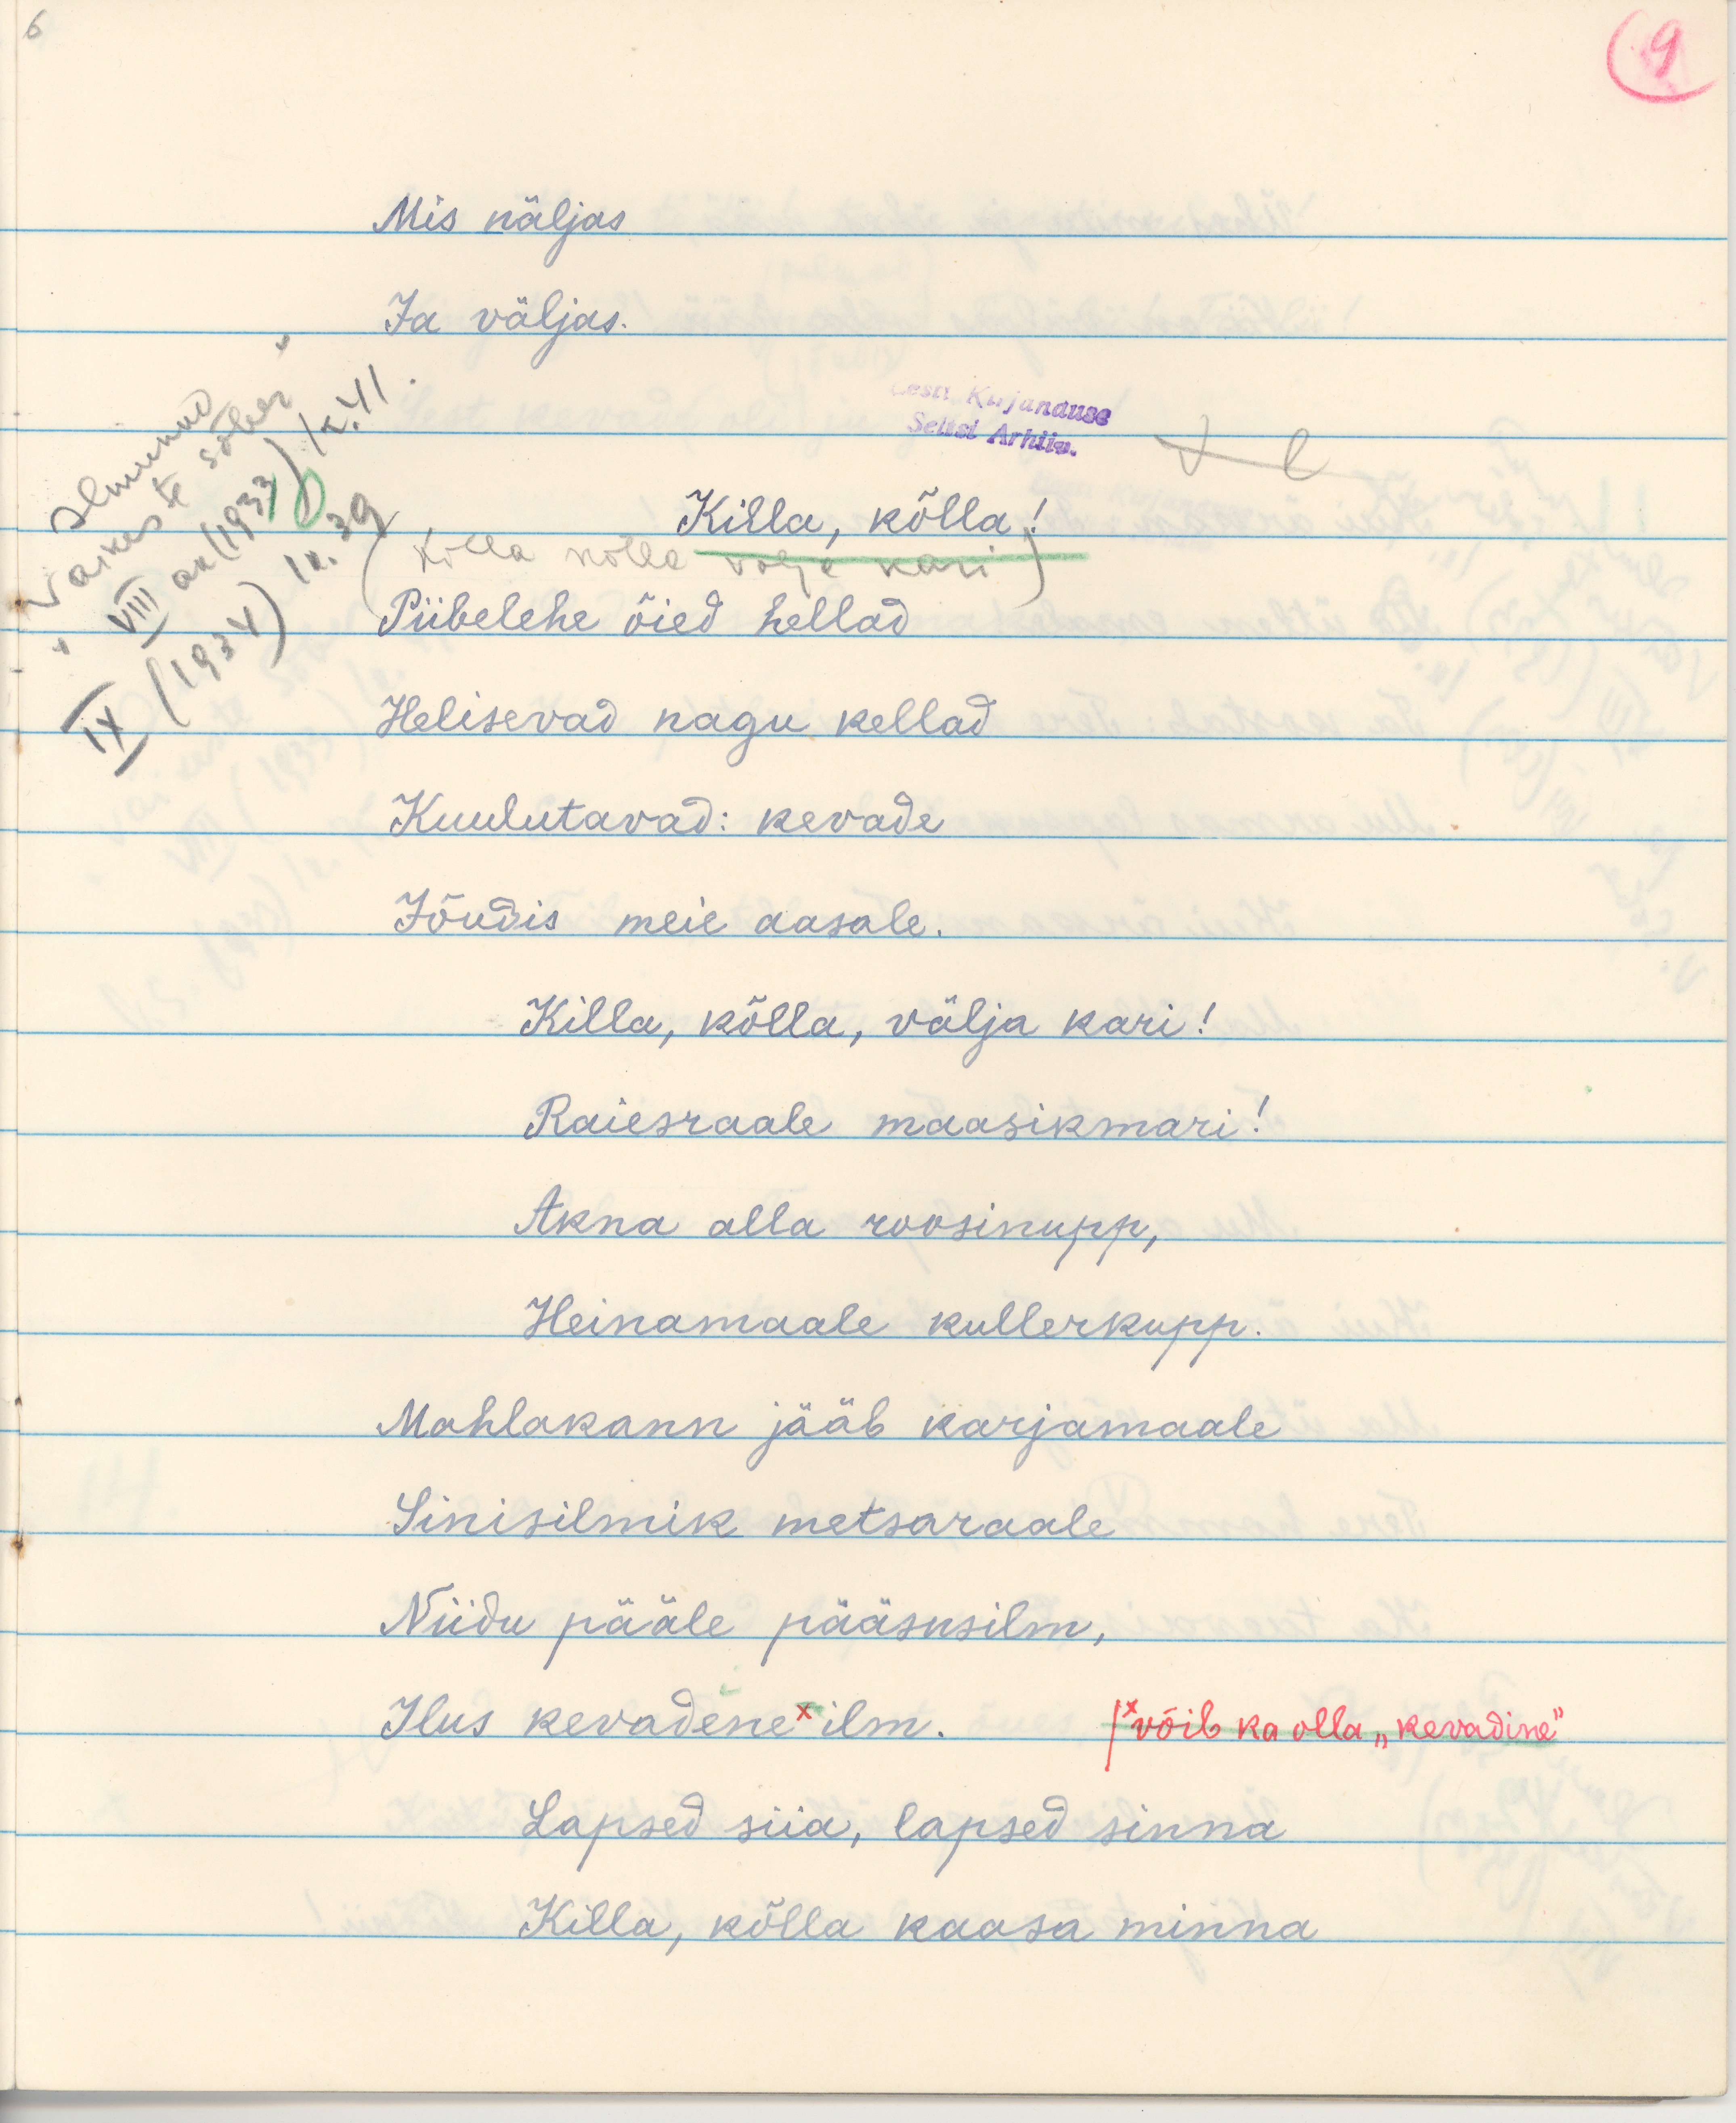 6
9
Mis näljas
Ja väljas.
Eesti Kirjanduse
Seltsi Arhiiv.
Ilmunud
"Väikeste sõber"
VIII an (1933) lk. 41.
IX (1934) lk. 39
Killa, kõlla!
(Killa kõlla välja kari)
Piibelehe õied hellad
Helisevad nagu kellad
Kuulutavad: kevade
Jõudis meie aasale.
Killa, kõlla, välja kari!
Raiesraale maasikmari!
Akna alla roosinupp,
Heinamaale kullerkupp.
Mahlakann jääb karjamaale
Sinisilmik metsaraale
Niidu pääle pääsusilm,
Ilus kevadene x ilm. /x võib ka olla „kevadine"
Lapsed siia, lapsed sinna
Killa, kõlla kaasa minna